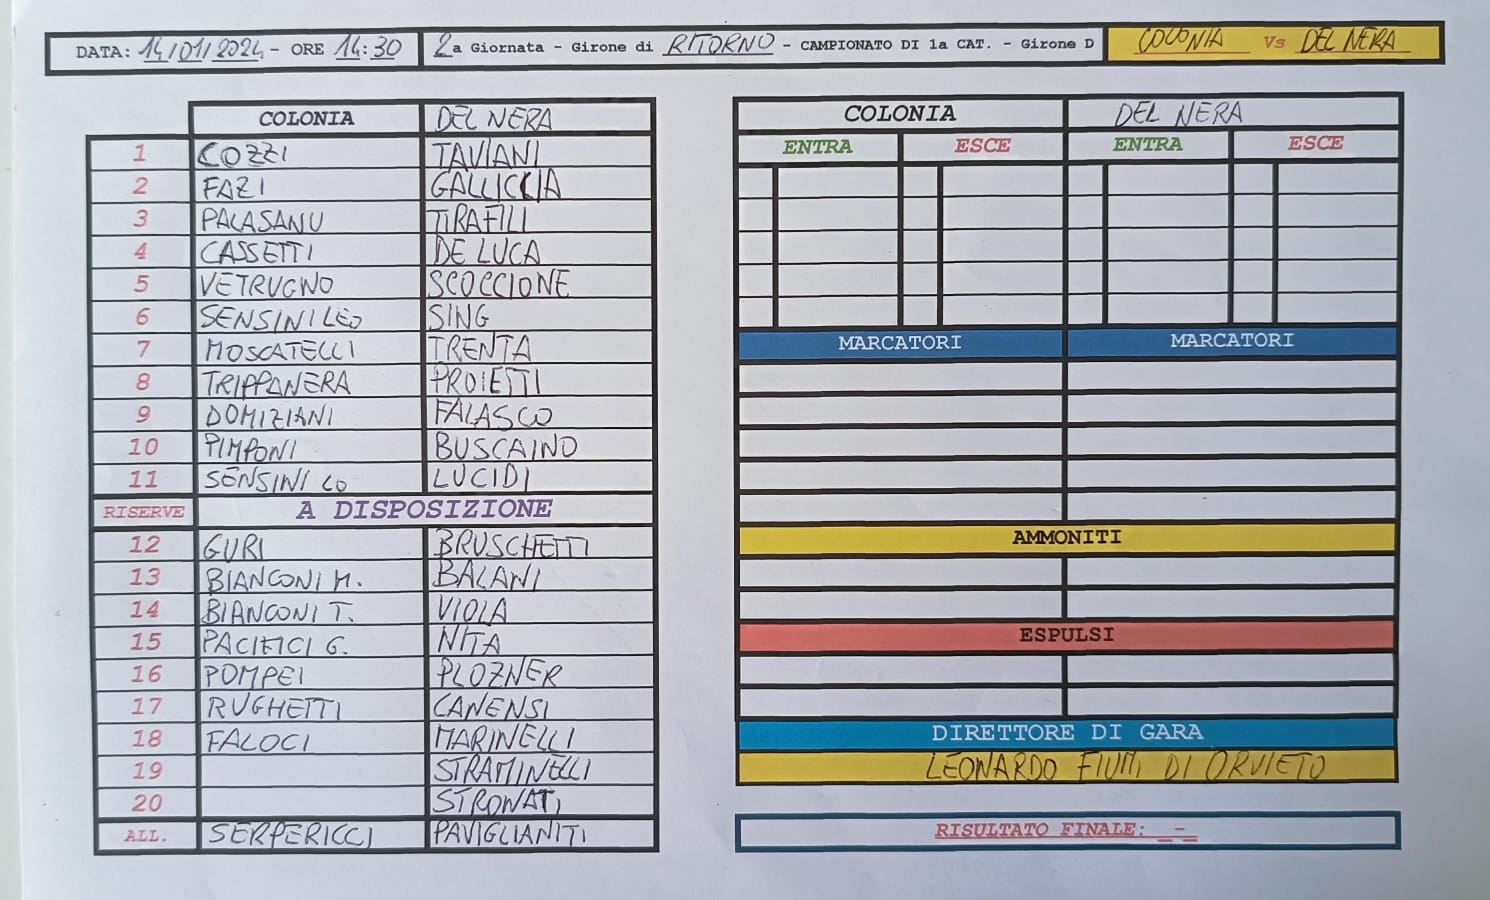 DATA: 14/01/2024 - ORE 14:30 2a Giornata - Girone di RITORNO - CAMPIONATO DI 1a CAT. - Girone D COLONIA Vs DEL NERA
COLONIA DEL NERA
1 COZZI TAVIANI
2 FAZI GALLICCIA
3 PALASANU TIRAFILI
4 CASSETTI DE LUCA
5 VETRUGNO SCOCCIONE
6 SENSINI LEO SING
7 MOSCATELLI TRENTA
8 TRIPPANERA PROIETTI
9 DOMIZIANI FALASCO
10 PIMPONI BUSCAINO
11 SENSINI LO LUCIDI
RISERVE A DISPOSIZIONE
12 GURI BRUSCHETTI
13 BIANCONI M. BALANI
14 BIANCONI T. VIOLA
15 PACIFICI G. NITA
16 POMPEI PLOZNER
17 RUGHETTI CANENSI
18 FALOCI MARINELLI
19 STRAMINELLI
20 STRONATI
ALL. SERPERICCI PAVIGLIANITI
COLONIA DEL NERA
ENTRA ESCE ENTRA ESCE
MARCATORI MARCATORI
AMMONITI
ESPULSI
DIRETTORE DI GARA
LEONARDO FIUMI DI ORVIETO
RISULTATO FINALE: _-_